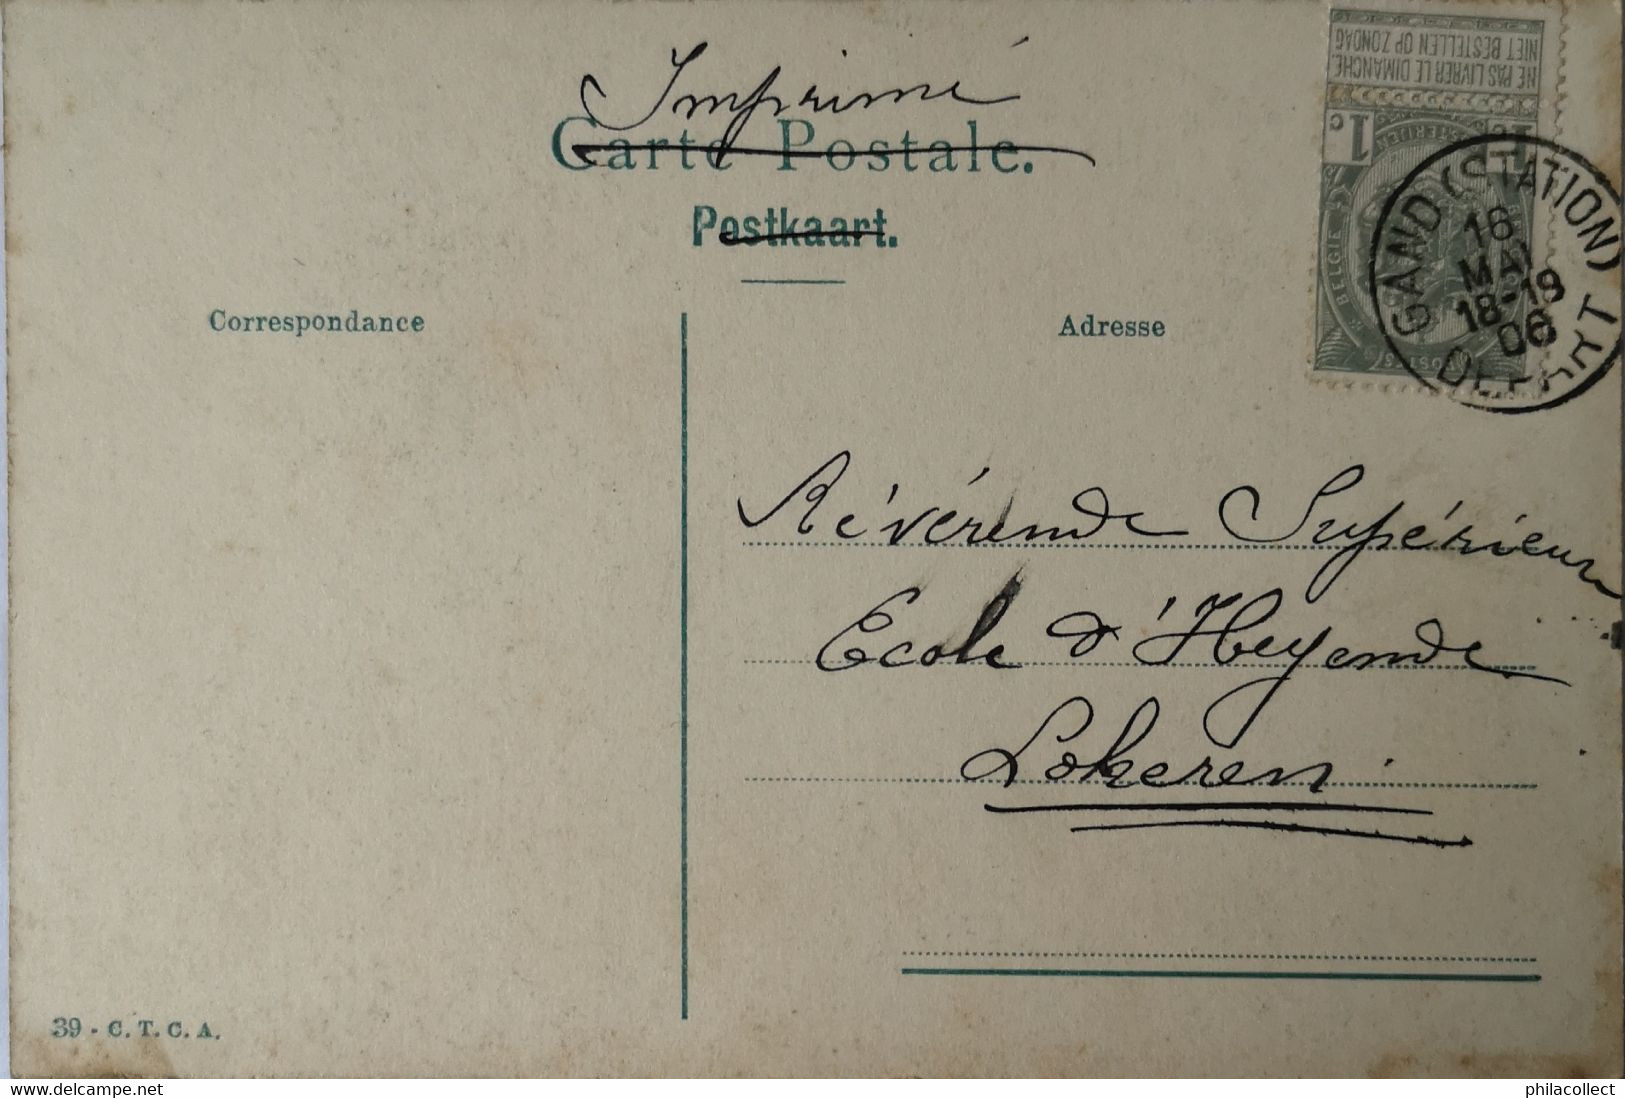 Imprimé
Carte Postale.
Postkaart.
Correspondance
Adresse
NE PAS LIVRER LE DIMANCHE.
NIET BESTELLEN OP ZONDAG
1c
BELGIE
GAND (STATION)
16
MAI
18-19
06
DEPART
Révérende Supérieure
Ecole d'Heyende
Lokeren
39 - C. T. C. A.
philacollect